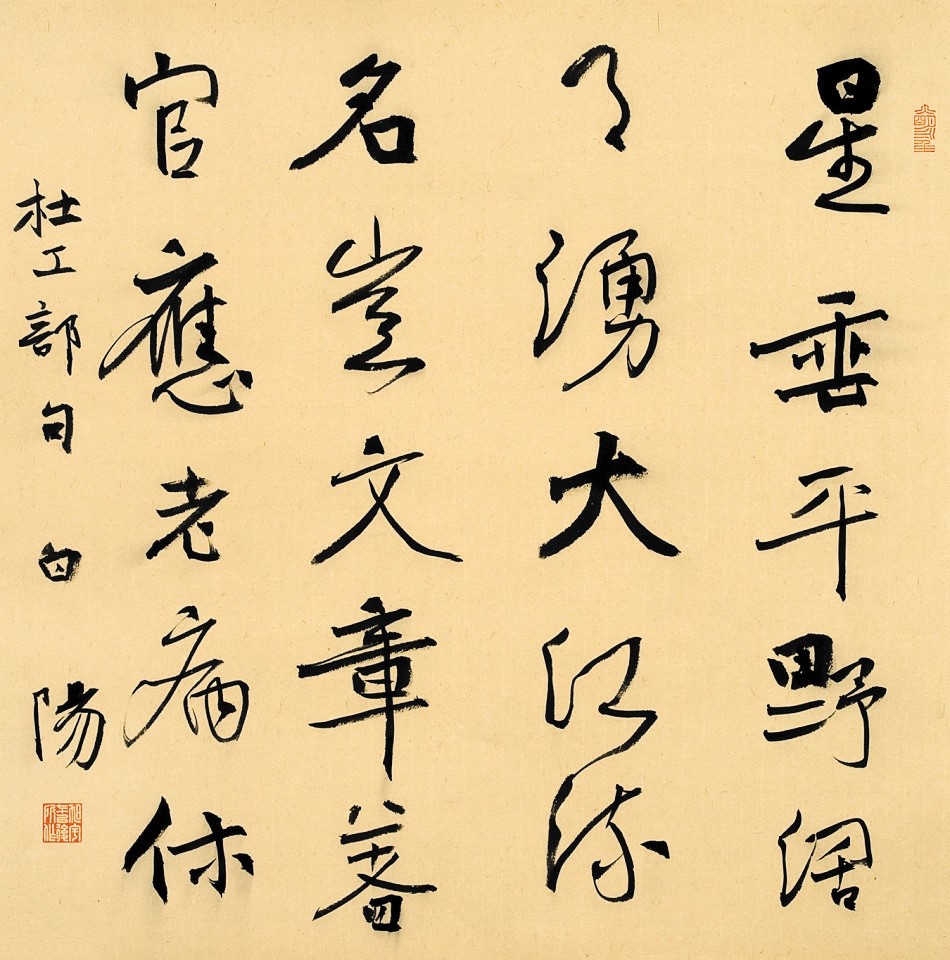 星垂平野濶
月湧大江流
名豈文章著
官應老病休
杜工部句 陽